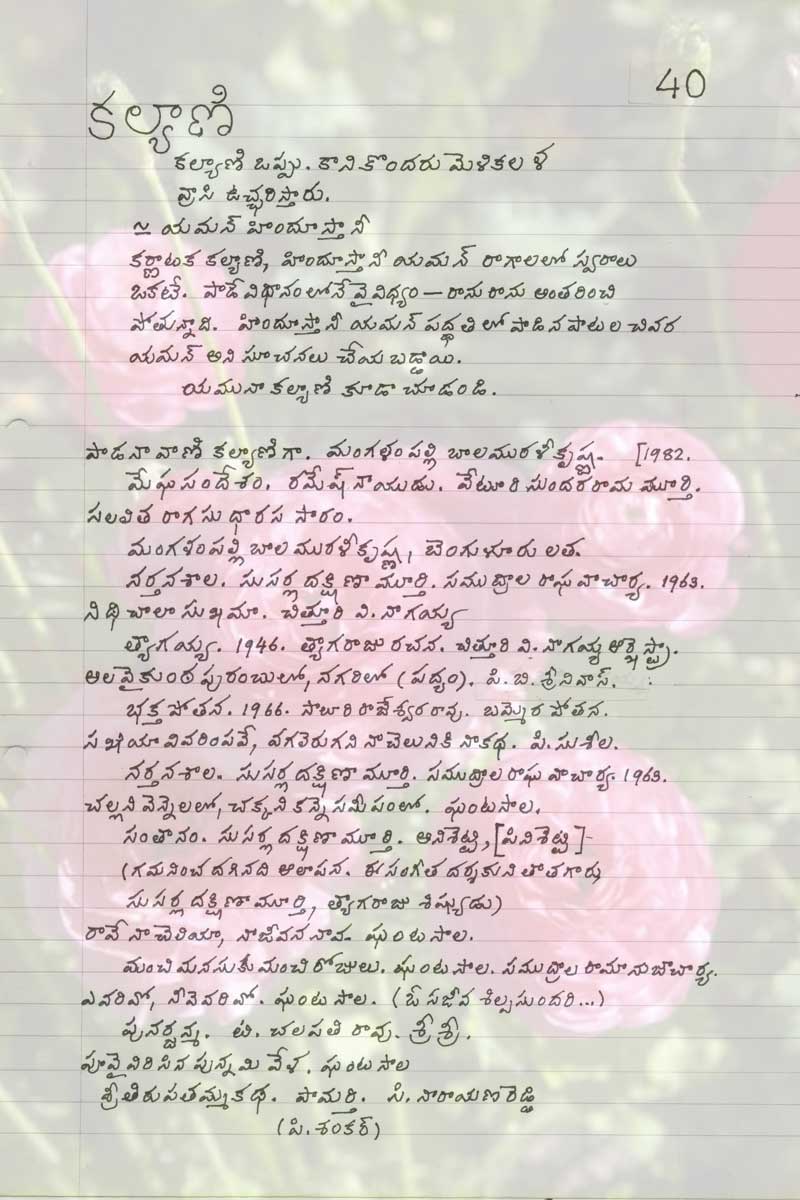 40
కల్యాణి
కల్యాణి ఒప్పు. కాని కొందరు మెళికల ళ
వ్రాసి ఉచ్ఛరిస్తారు.
≃ యమన్ హిందూస్తానీ
కర్ణాటక కల్యాణి, హిందూస్తానీ యమన్ రాగాలలో స్వరాలు
ఒకటే. పాడే విధానంలోనే వైవిధ్యం — రాను రాను అంతరించి
పోతున్నాది. హిందూస్తానీ యమన్ పద్ధతిలో పాడిన పాటల చివర
యమన్ అని సూచనలు చేయబడ్డాయి.
యమునా కల్యాణి కూడా చూడండి.
పాడనా వాణి కల్యాణిగా. మంగళంపల్లి బాలమురళీకృష్ణ. [1982.
మేఘసందేశం. రమేష్ నాయుడు. వేటూరి సుందరరామ మూర్తి.
సలలిత రాగ సుధారస సారం.
మంగళంపల్లి బాలమురళీకృష్ణ, బెంగుళూరు లత.
నర్తనశాల. సుసర్ల దక్షిణామూర్తి. సముద్రాల రాఘవాచార్య. 1963.
నిధి చాలా సుఖమా. చిత్తూరి వి. నాగయ్య
త్యాగయ్య. 1946. త్యాగరాజు రచన. చిత్తూరి వి. నాగయ్య ఆర్కెస్ట్రా.
అల వైకుంఠపురంబులో, నగరిలో (పద్యం). పి. బి. శ్రీనివాస్.
భక్త పోతన. 1966. సాలూరి రాజేశ్వరరావు. బమ్మెర పోతన.
సఖియా వివరింపవే, వగలెరుగని నా చెలునికి నా కథ. పి. సుశీల.
నర్తనశాల. సుసర్ల దక్షిణామూర్తి. సముద్రాల రాఘవాచార్య. 1963.
చల్లని వెన్నెలలో, చక్కని కన్నె సమీపంలో. ఘంటసాల.
సంతానం. సుసర్ల దక్షిణామూర్తి. అనిశెట్టి, [పినిశెట్టి]
(గమనించ దగినది ఆలాపన. ఈ సంగీత దర్శకుని తాతగారు
సుసర్ల దక్షిణామూర్తి, త్యాగరాజు శిష్యుడు)
రావే నా చెలియా, నా జీవన నావ. ఘంటసాల.
మంచి మనసుకు మంచి రోజులు. ఘంటసాల. సముద్రాల రామానుజాచార్య.
ఎవరివో, నీవెవరివో. ఘంటసాల. (ఓ సజీవ శిల్పసుందరి...)
పునర్జన్మ. టి. చలపతి రావు. శ్రీ శ్రీ.
పూవై విరిసిన పున్నమి వేళ. ఘంటసాల
శ్రీ తిరుపతమ్మ కథ. పామర్తి. సి. నారాయణ రెడ్డి
(పి. శంకర్)